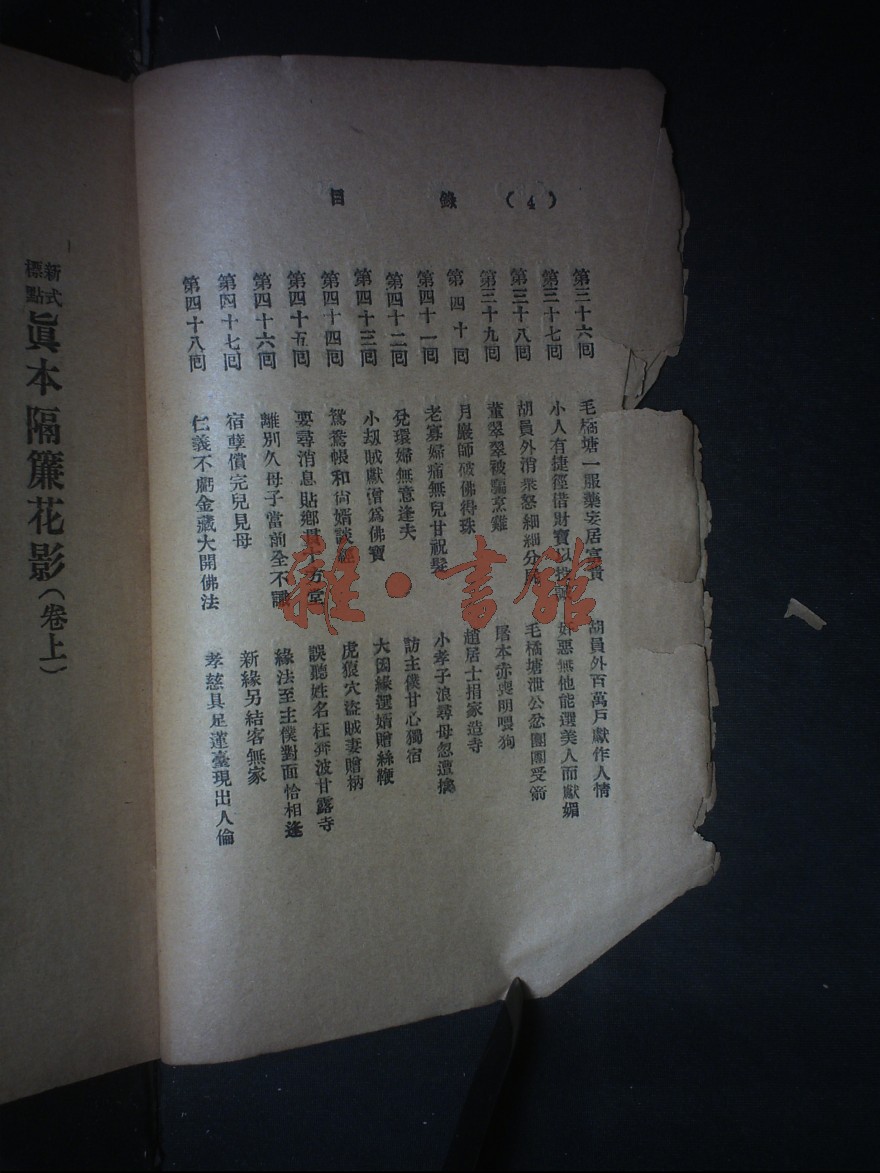 目錄（4）
第三十六囘　毛橘塘一服藥妄居富貴　胡員外百萬戶獻作人情
第三十七囘　小人有捷徑借財寶以投誠　奸惡無他能選美人而獻媚
第三十八囘　胡員外消衆怒細細分屍　毛橘塘泄公忿團團受箭
第三十九囘　董翠翠被騙烹雞　屠本赤喪明喂狗
第四十囘　月巖師破佛得珠　趙居士捐家造寺
第四十一囘　老寡婦痛無兒甘祝髮　小孝子浪尋母忽遭擒
第四十二囘　兌環婦無意逢夫　訪主僕甘心獨宿
第四十三囘　小刼賊獻僧爲佛寶　大因緣選婿贈絲鞭
第四十四囘　鴛鴦帳和尙婿談經　虎狼穴盜賊妻贈柄
第四十五囘　要尋消息貼鄉貫十方堂　誤聽姓名枉奔波甘露寺
第四十六囘　離別久母子當前全不識　緣法至主僕對面恰相逢
第四十七囘　宿孽償完兒見母　新緣另結客無家
第四十八囘　仁義不虧金藏大開佛法　孝慈具足蓮臺現出人倫
新式標點眞本隔簾花影（卷上）
雜·書館